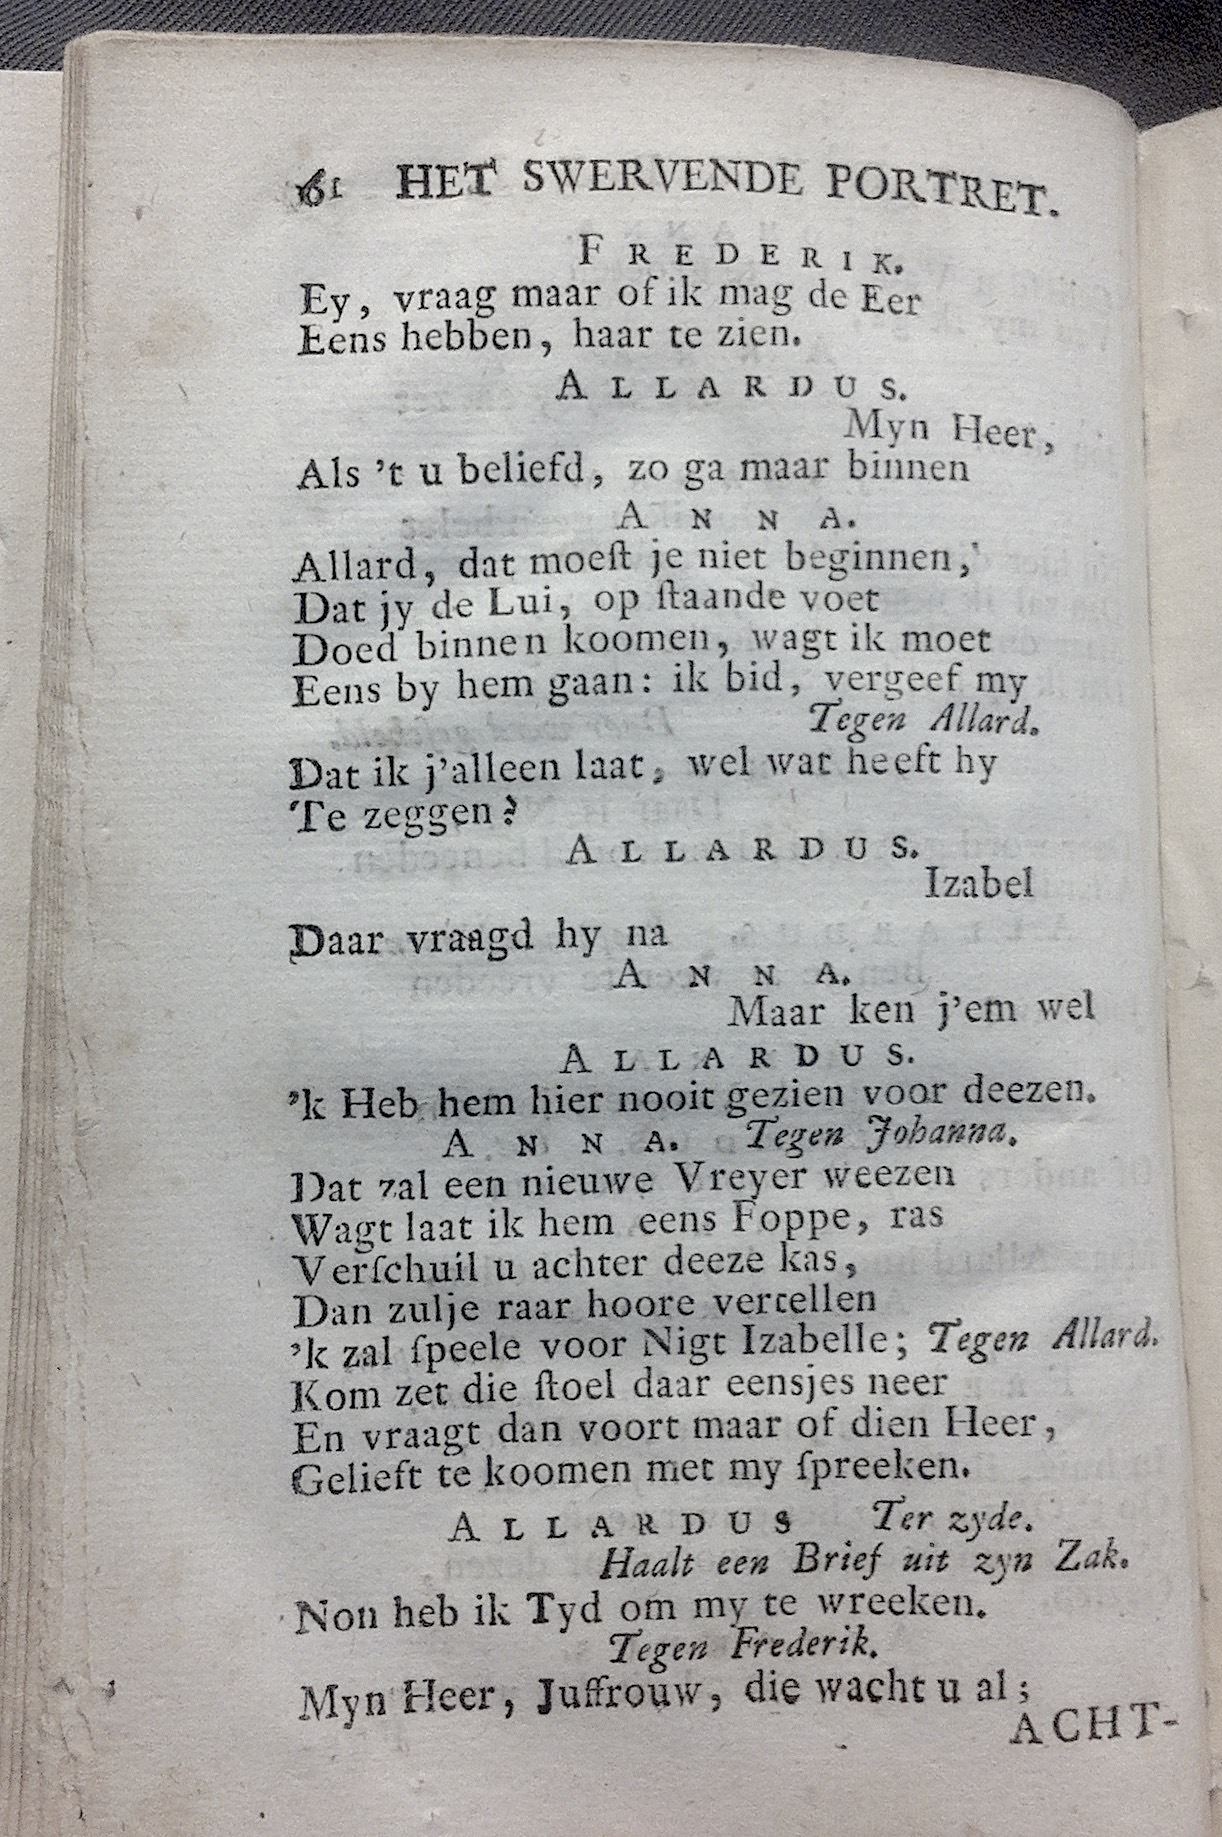 61 HET SWERVENDE PORTRET.
FREDERIK.
Ey, vraag maar of ik mag de Eer
Eens hebben, haar te zien.
ALLARDUS.
Myn Heer,
Als 't u beliefd, zo ga maar binnen
ANNA.
Allard, dat moeſt je niet beginnen,
Dat jy de Lui, op ſtaande voet
Doed binnen koomen, wagt ik moet
Eens by hem gaan: ik bid, vergeef my
Tegen Allard.
Dat ik j'alleen laat, wel wat heeft hy
Te zeggen?
ALLARDUS.
Izabel
Daar vraagd hy na
ANNA.
Maar ken j'em wel
ALLARDUS.
'k Heb hem hier nooit gezien voor deezen.
ANNA. Tegen Johanna.
Dat zal een nieuwe Vreyer weezen
Wagt laat ik hem eens Foppe, ras
Verſchuil u achter deeze kas,
Dan zulje raar hoore vertellen
'k zal ſpeele voor Nigt Izabelle; Tegen Allard.
Kom zet die ſtoel daar eensjes neer
En vraagt dan voort maar of dien Heer,
Gelieft te koomen met my ſpreeken.
ALLARDUS Ter zyde.
Haalt een Brief uit zyn Zak.
Non heb ik Tyd om my te wreeken.
Tegen Frederik.
Myn Heer, Juffrouw, die wacht u al;
ACHT-